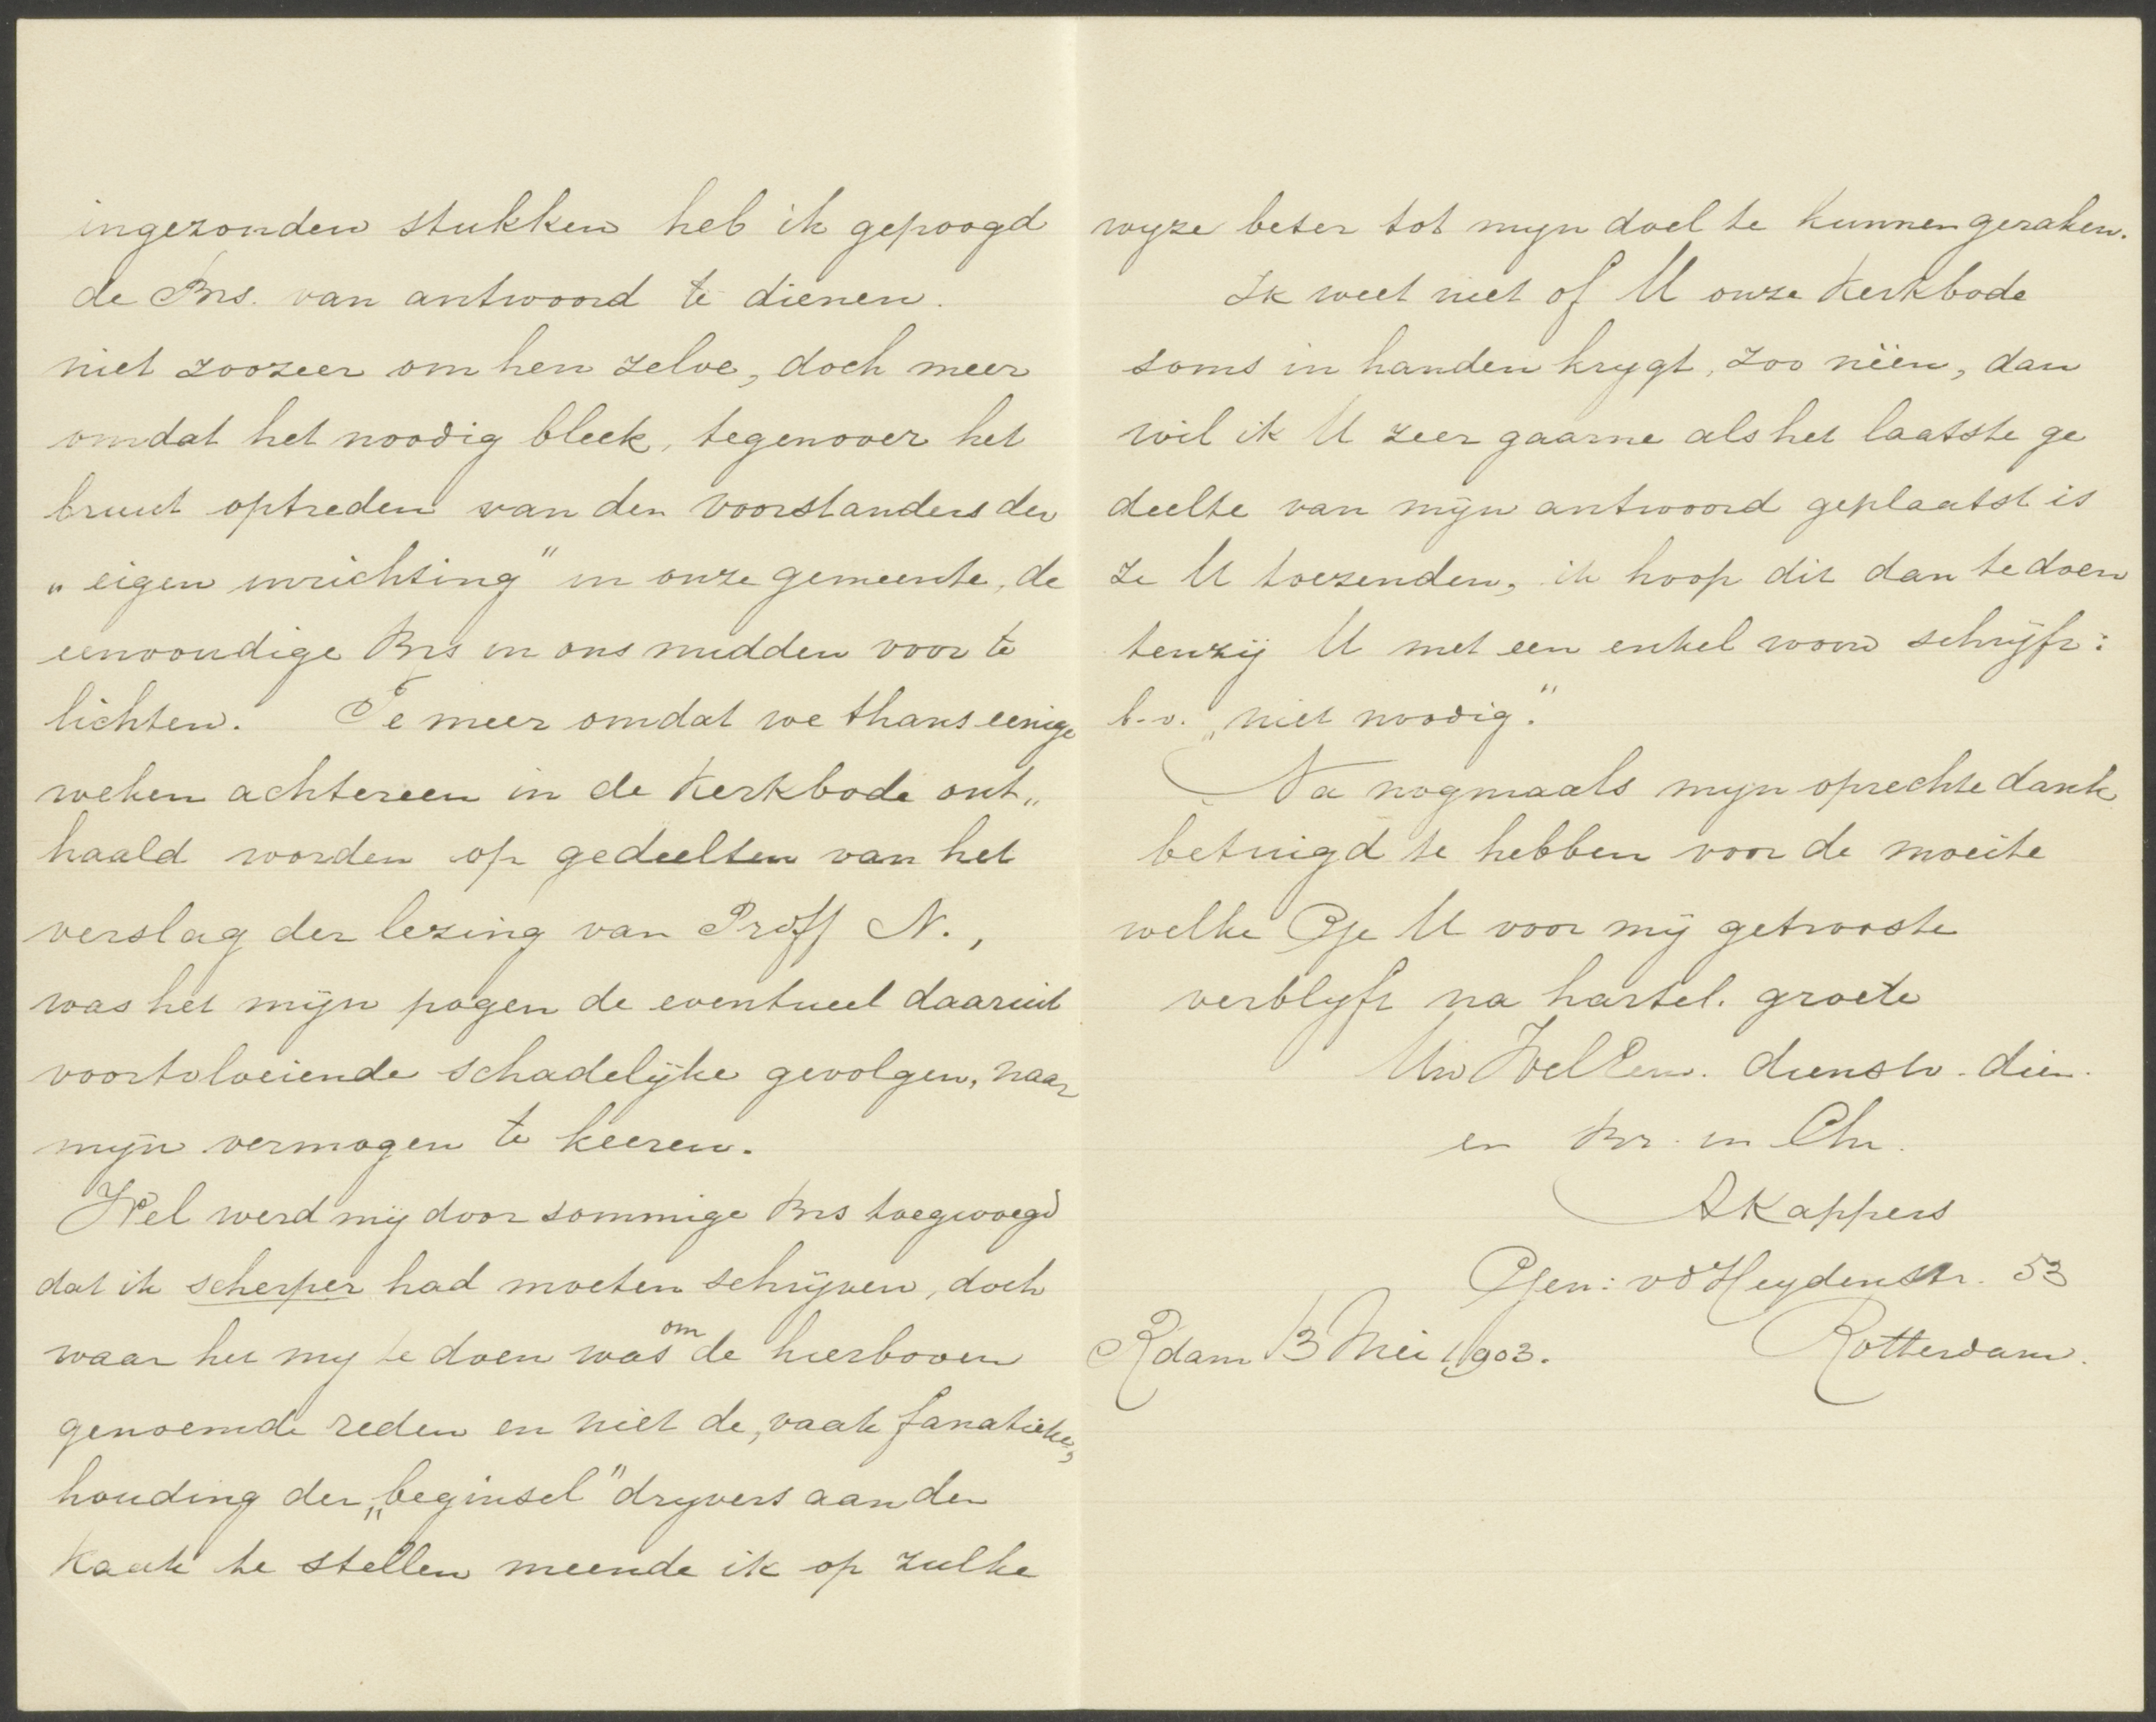 ingezonden stukken heb ik gepoogd
de Brs. van antwoord te dienen.
niet zoozeer om hen zelve, doch meer
omdat het noodig bleek, tegenover het
bruut optreden van den voorstanders der
„eigen inrichting" in onze gemeente, de
eenvoudige Brs in ons midden voor te
lichten. Te meer omdat we thans eenige
weken achtereen in de Kerkbode ont„
haald worden op gedeelten van het
verslag der lezing van Proff N.,
was het mijn pogen de eventueel daaruit
voortvloeiende schadelijke gevolgen, naar
mijn vermogen te keeren.
Wel werd mij door sommige Brs toegevoegd
dat ik scherper had moeten schrijven, doch
waar het my te doen was om de hierboven
genoemde reden en niet de, vaak fanatieke,
houding der „beginsel" dryvers aan den
Kaak te stellen meende ik op zulke
wyze beter tot myn doel te kunnen geraken.
Ik weet niet of U onze Kerkbode
soms in handen krygt, zoo nëen, dan
wil ik U zeer gaarne als het laatste ge
deelte van mijn antwoord geplaatst is
ze U toezenden, ik hoop dit dan te doen
tenzij U met een enkel woord schrijft:
b.v. „niet noodig."
Na nogmaals myn oprechte dank
betuigd te hebben voor de moeite
welke Gje U voor mij getrooste
verblyft na hartel. groete
Uw WelEerw. dienstw. dien.
en Br. in Chr.
AKappers
Gen: vd Heydenstr. 53
Rdam 13 Mei 1903. Rotterdam.